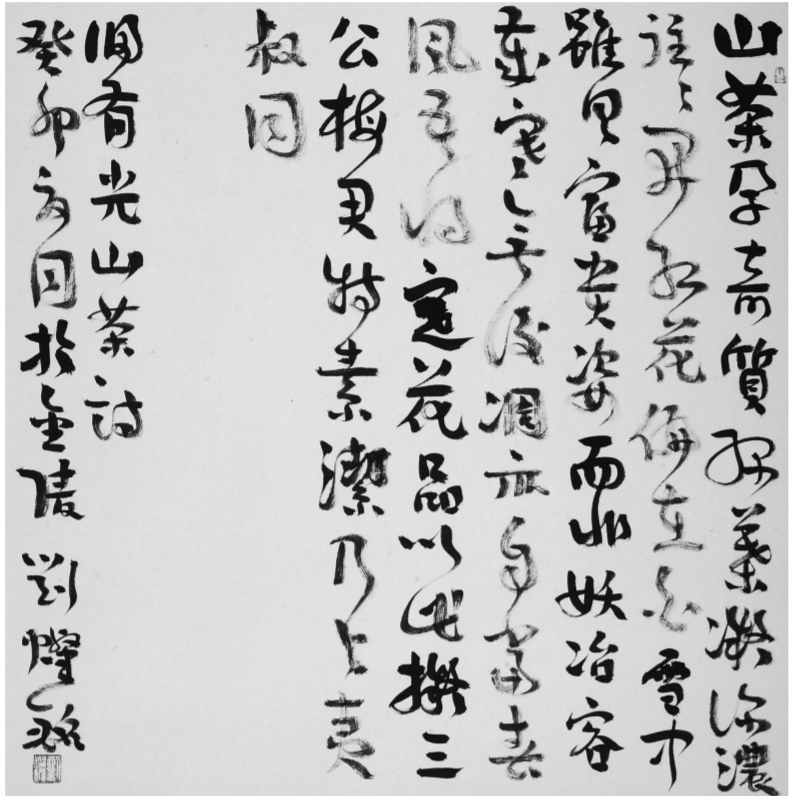 山茶孕奇質綠葉凝深濃
往〻開紅花偏在白雪中
雖具富貴姿而非妖冶容
歲寒無後凋亦自當春
風吾將定花品以此擬三
公梅君特素潔乃與夷
叔同
歸有光山茶詩
癸卯於金陵 劉燦銘